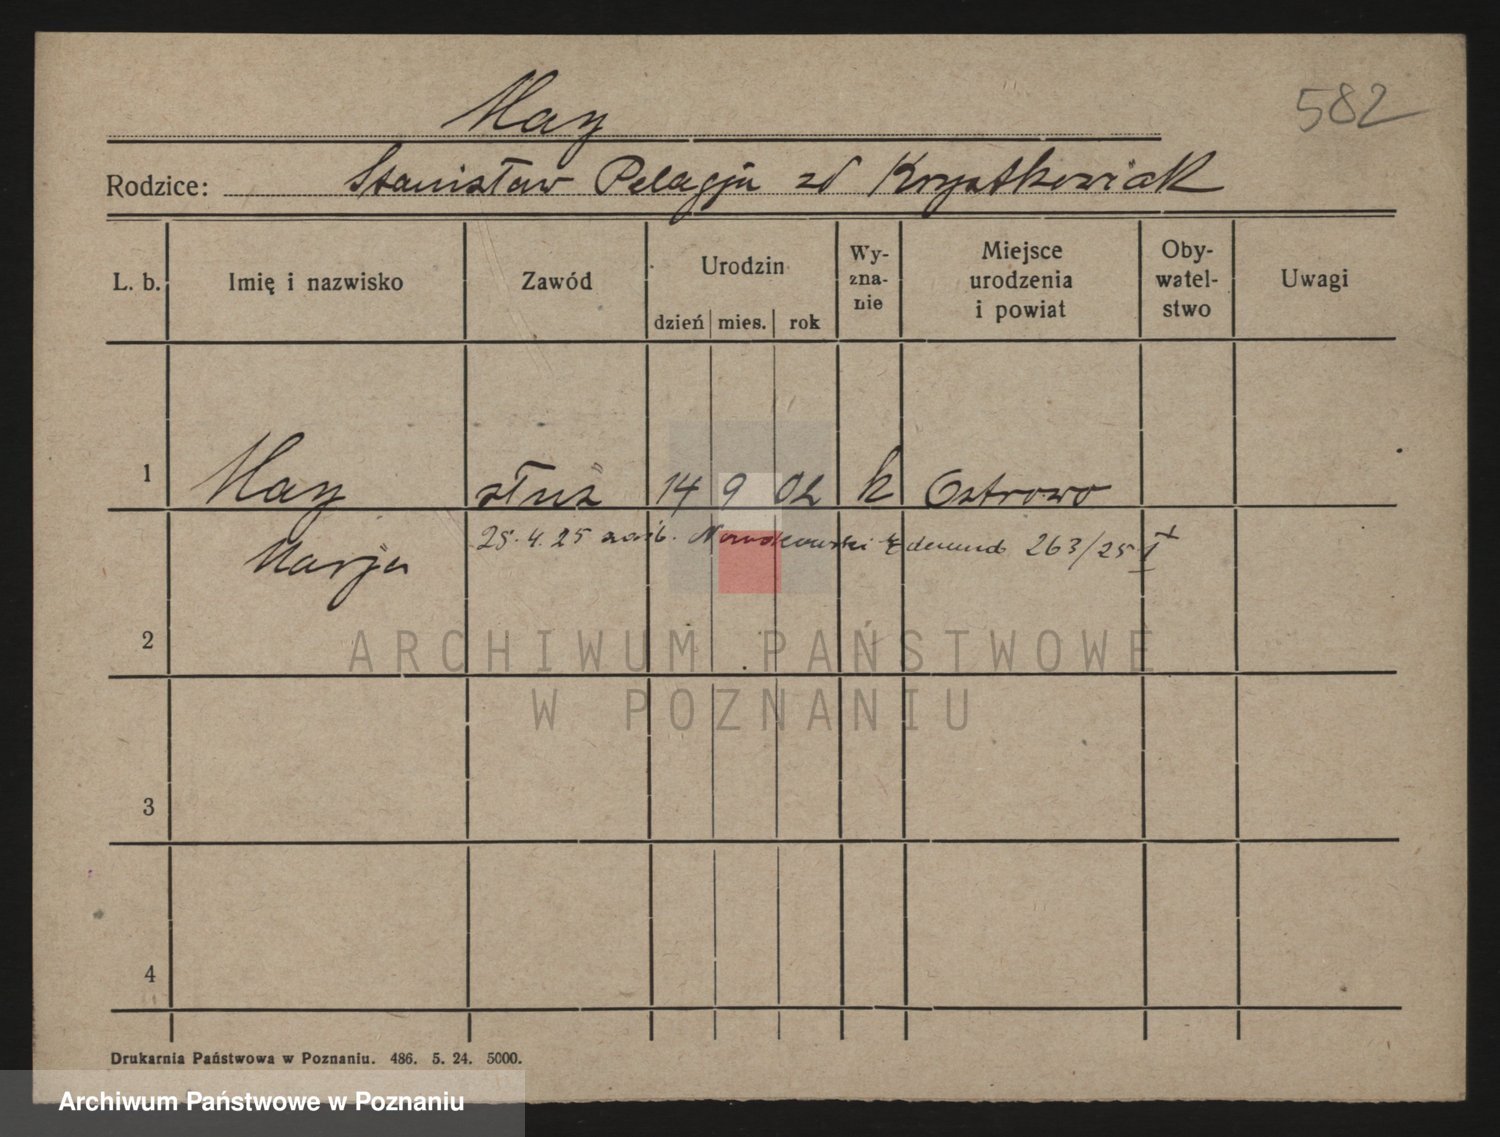 May
582
Rodzice: Stanisław Pelagja zd Krystkowiak
L. b.
Imię i nazwisko
Zawód
Urodzin
dzień mies. rok
Wy-
zna-
nie
Miejsce
urodzenia
i powiat
Oby-
watel-
stwo
Uwagi
1 May służ 14 9 02 k Ostrowo
Marja 25.4.25 zaśl. Nowakowski Edmund 263/25 I
2
3
4
ARCHIWUM PAŃSTWOWE
W POZNANIU
Drukarnia Państwowa w Poznaniu. 486. 5. 24. 5000.
Archiwum Państwowe w Poznaniu